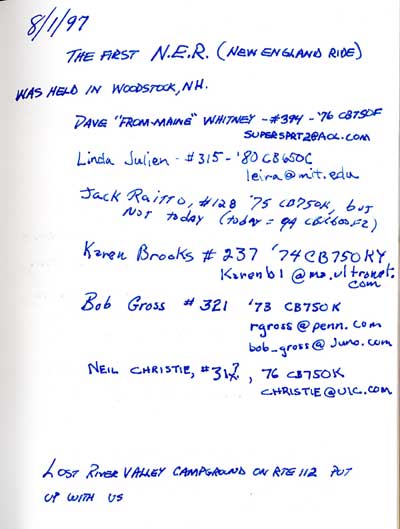 8/1/97
THE FIRST N.E.R. (NEW ENGLAND RIDE)
WAS HELD IN WOODSTOCK, NH.
DAVE "FROM-MAINE" WHITNEY - #394 - '76 CB750F
SUPERSPRT2@AOL.COM
Linda Julien - #315 - '80 CB650C
leira@mit.edu
Jack Raitto, #128 '75 CB750K, but
NOT today (today = 94 CBR600F2)
Karen Brooks # 237 '74 CB750K4
Karenb1@ma.ultranet.
com
Bob Gross # 321 '73 CB750K
rgross@penn.com
bob_gross@Juno.com
NEIL CHRISTIE, , 76 CB750K
CHRISTIE@UIC.COM
LOST RIVER VALLEY CAMPGROUND ON RTE 112 PUT
UP WITH US